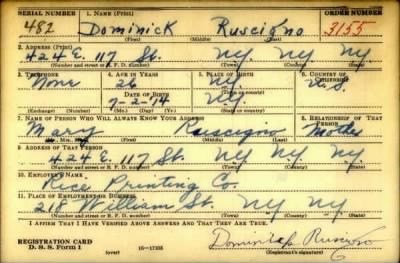 SERIAL NUMBER 1. NAME (Print) ORDER NUMBER
482 Dominick Ruscigno 3155
(First) (Middle) (Last)
2. ADDRESS (Print)
424 E. 117 St. N.Y. N.Y. N.Y.
(Number and street or R. F. D. number) (Town) (County) (State)
3. TELEPHONE 4. AGE IN YEARS 5. PLACE OF BIRTH 6. COUNTRY OF CITIZENSHIP
None 26 N.Y. U.S.
DATE OF BIRTH (Town or county)
7-2-14 N.Y.
(Exchange) (Number) (Mo.) (Day) (Yr.) (State or country)
7. NAME OF PERSON WHO WILL ALWAYS KNOW YOUR ADDRESS 8. RELATIONSHIP OF THAT PERSON
Mary Ruscigno Mother
(Mr., Mrs., Miss) (First) (Middle) (Last)
9. ADDRESS OF THAT PERSON
424 E. 117 St. N.Y. N.Y. N.Y.
(Number and street or R. F. D. number) (Town) (County) (State)
10. EMPLOYER'S NAME
Rice Printing Co.
11. PLACE OF EMPLOYMENT OR BUSINESS
218 William St. N.Y. N.Y.
(Number and street or R. F. D. number) (Town) (County) (State)
I AFFIRM THAT I HAVE VERIFIED ABOVE ANSWERS AND THAT THEY ARE TRUE.
REGISTRATION CARD Dominick Ruscigno
D. S. S. Form 1 (over) 16-17105 (Registrant's signature)